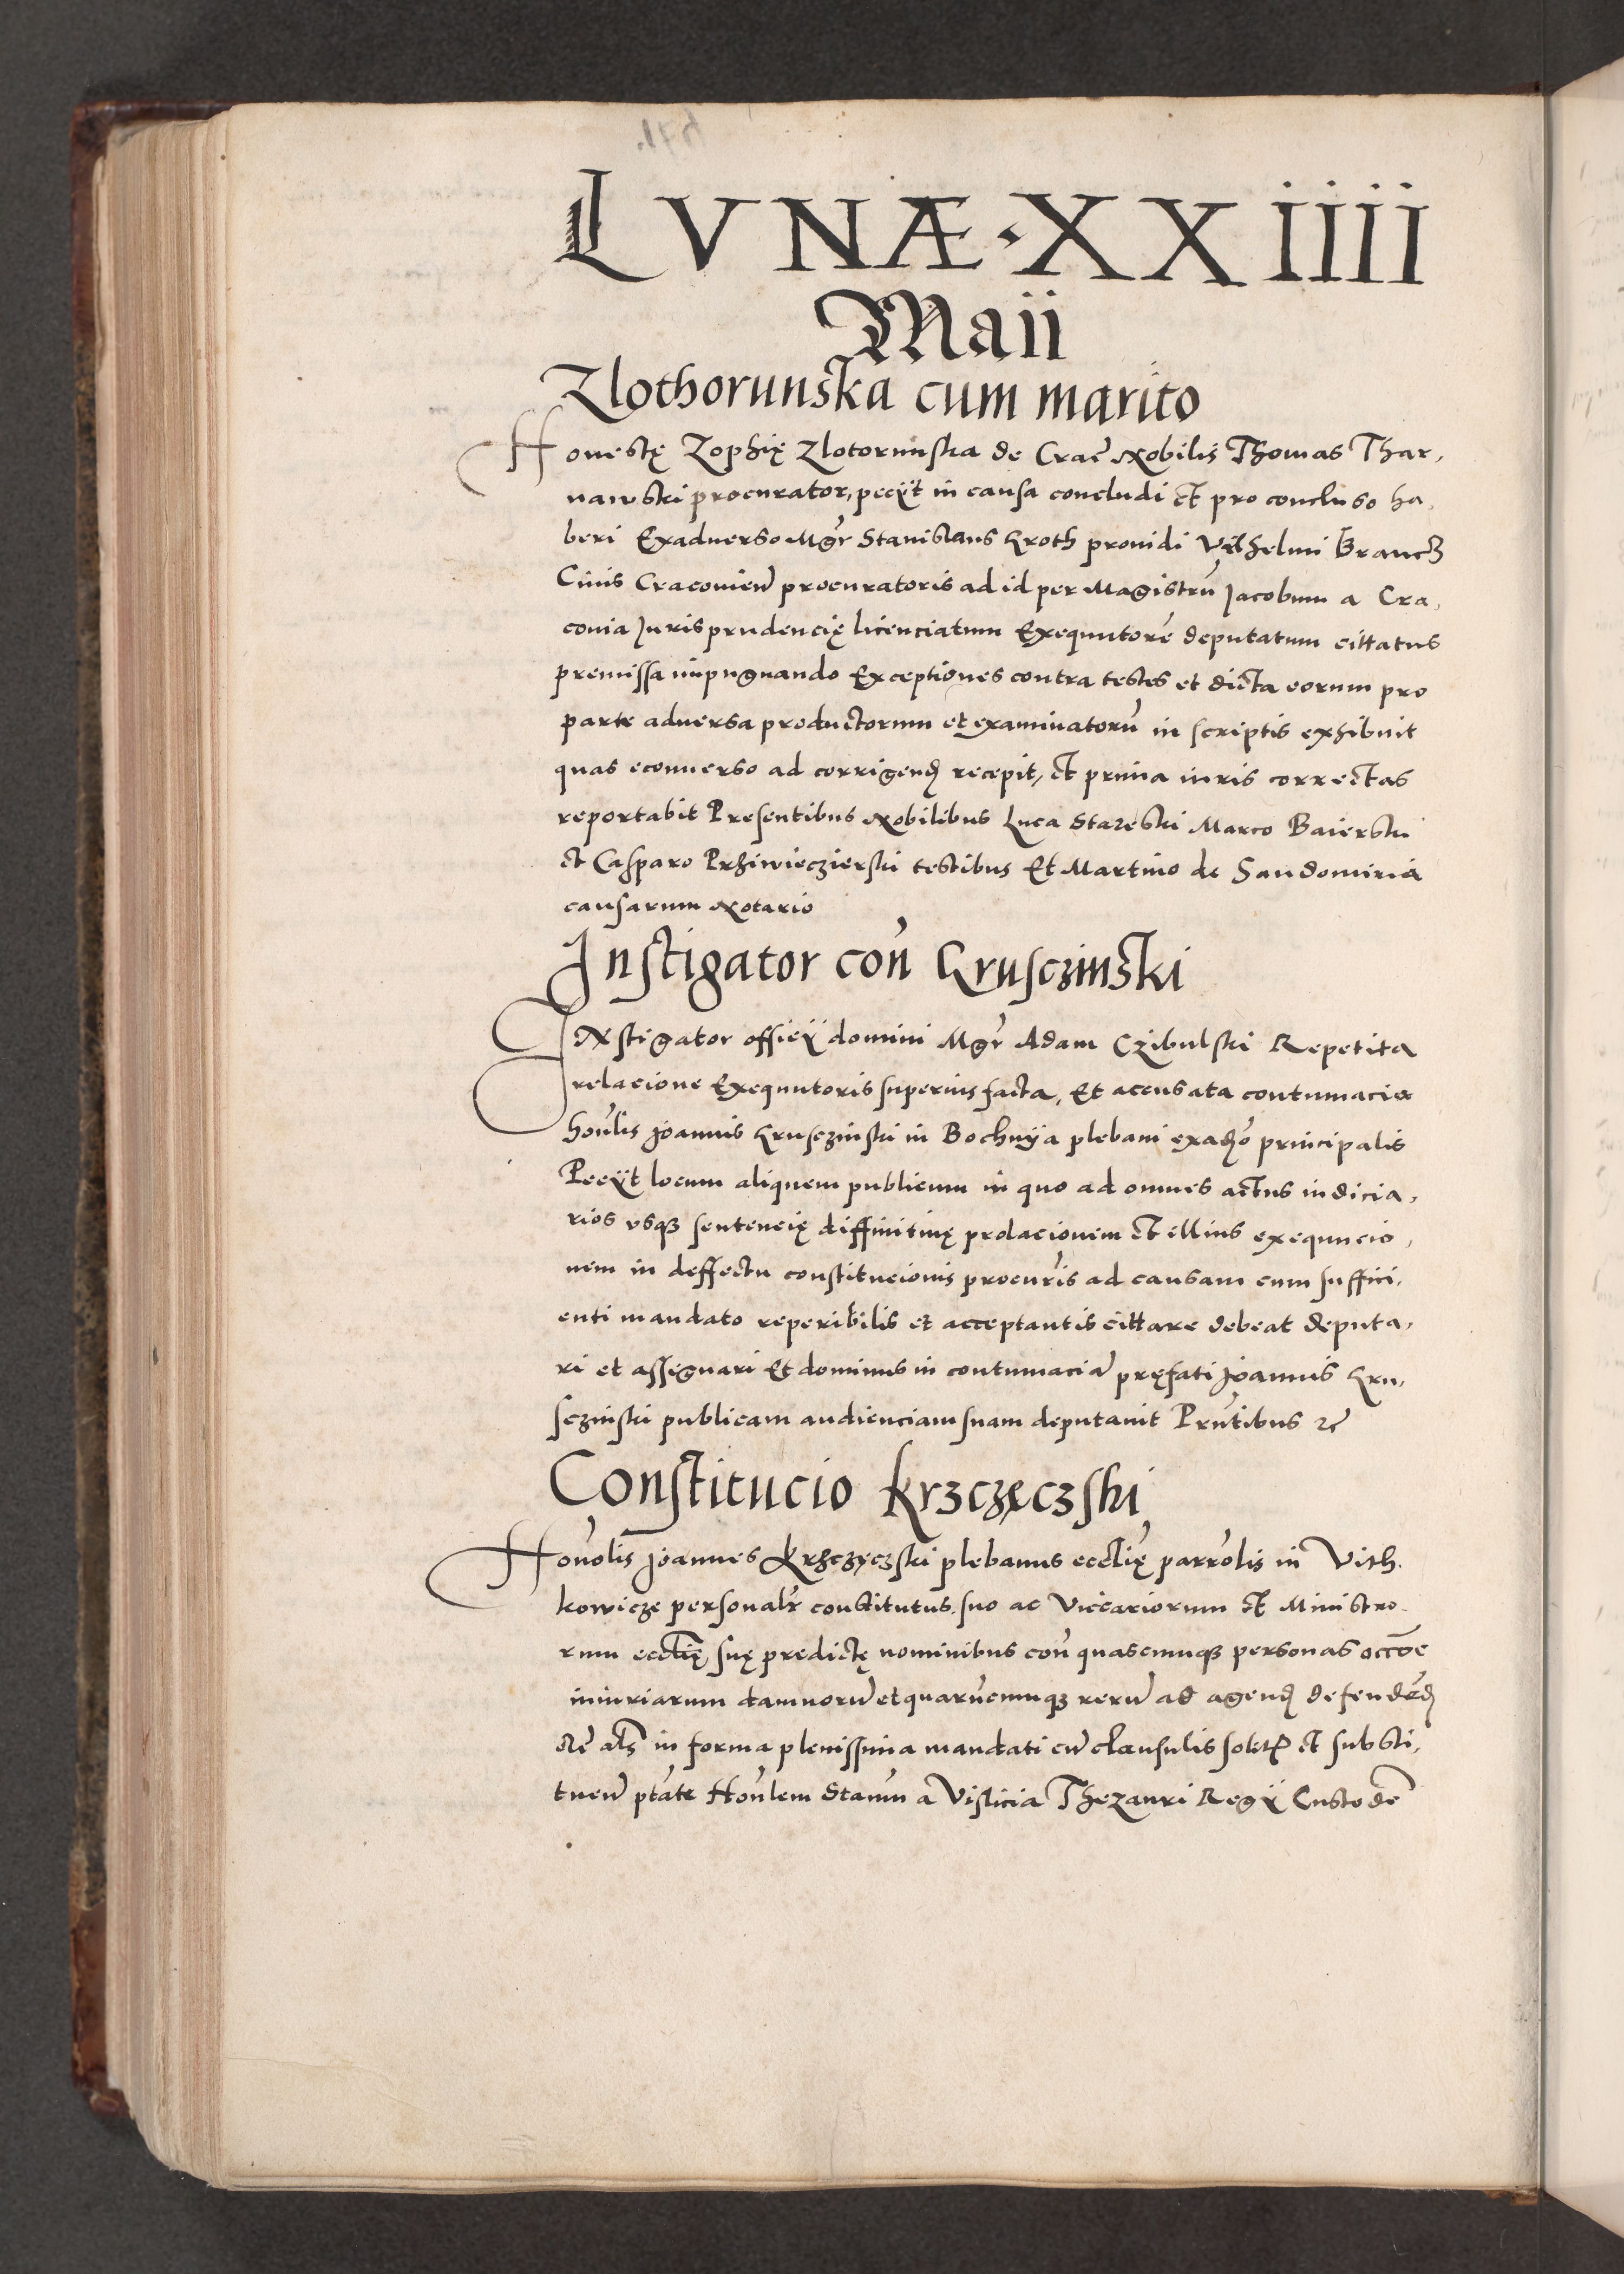 LVNÆ · XXIIII
Maii
Zlothorunska cum marito
Honestę Zophię Zlotorunska de Crac̃ Nobilis Thomas Thar,
nawski procurator, pecÿt in causa concludi et pro concluso ha,
beri Exaduerso Mgr̃ Stanislaus Kroth prouidi Vilhelmi Brancz
Ciuis Cracovien̄ procuratoris ad id per Magistrū Jacobum a Cra,
couia Jurisprudencię licenciatum Exequutorē deputatum cittatus
premissa impugnando Exceptiones contra testes et dicta eorum pro
parte aduersa productorum et examinatorū in scriptis exhibuit
quas econuerso ad corrigend̄ recepit, et prima iuris correctas
reportabit Presentibus Nobilibus Luca Stareski Marco Baierski
et Casparo Przhiwieczierski testibus Et Martino de Sandomiria
causarum Notario
Instigator con̄ Krusczinski
INstigator officÿ domini Mgr̃ Adam Czibulski Repetita
relacione Exequutoris superius facta, Et accusata contumacia
hon̄lis Joannis Krusczinski in Bochnÿa plebani exad̄o principalis
Pecÿt locum aliquem publicum in quo ad omnes actus iudicia,
rios vsqꝫ sentencię diffinitiuę prolacionem et illius exequucio,
nem in deffectu constitucionis procur̄is ad causam cum suffici,
enti mandato reperibilis et acceptantis cittare debeat deputa,
ri et assignari Et dominus in contumaciā pręfati Joannis Kru,
sczinski publicam audienciam suam deputauit Prn̄tibus ꝛc̃
Constitucio Krzczęczski
Honōlis Joannes Krzhczyczski plebanus eccl̄ię parrōlis in Vith.
kowicze personalr̃ constitutus, suo ac Viccariorum et Ministro-
rum eccl̄ię suę predictę nominibus con̄ quascumqꝫ personas occōe
iniuriarum damnorū et quarūcumqꝫ rerū ad agend̄ defendēd̄
als̄ in forma plenissima mandati cū clausulis solitꝭ et substi,
tuen̄ ptāte Hon̄lem Stanū a Vislicia Thezauri Regÿ Custodē